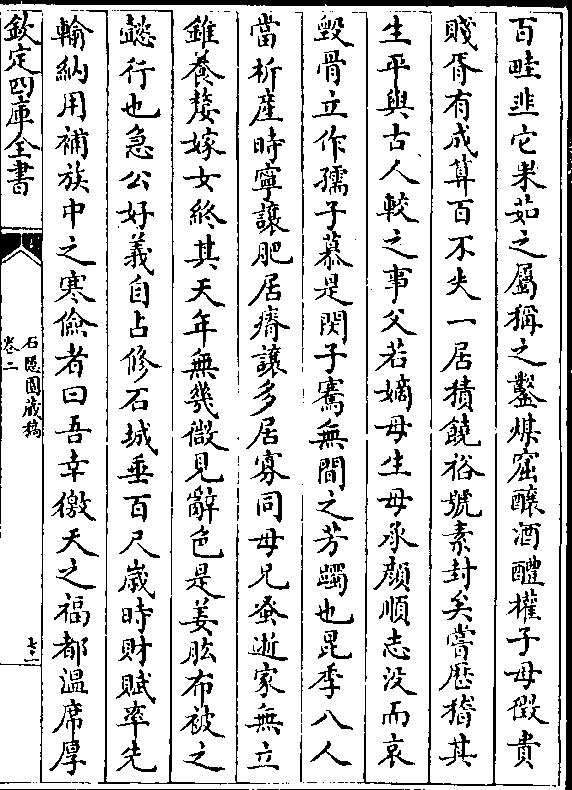 百畦韭它果茹之屬稱之鑿煤窑釀酒醴權子母徵貴
賤胥有成算百不失一居積饒裕號素封矣嘗歷稽其
生平與古人較之事父若嫡母生母承顔順志没而哀
毀骨立作孺子慕是閔子騫無間之芳躅也昆季八人
當析產時寧讓肥居瘠讓多居寡同母兄蚤逝家無立
錐養嫠嫁女終其天年無幾微見辭色是姜肱布被之
懿行也急公好義自占修石城垂百尺歲時財賦率先
輸納用補族中之寒儉者曰吾幸徼天之福都温席厚
欽定四庫全書
石隱園藏稿
卷二
七十二